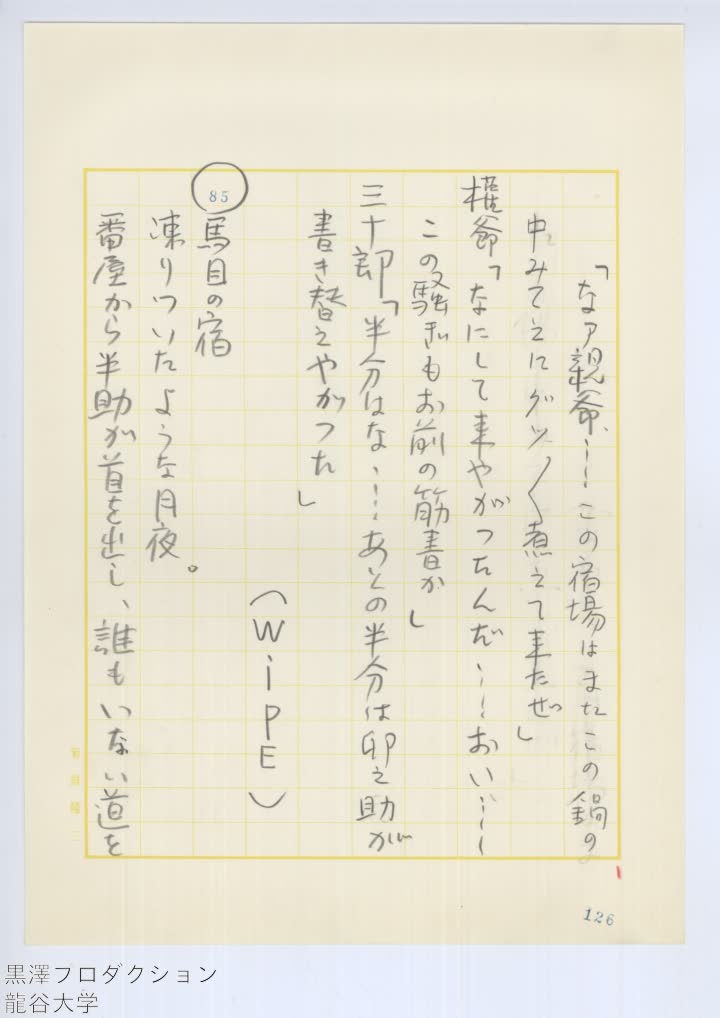 「なア親爺、……この宿場はまたこの鍋の
中みてえにグツ〱煮えて来たぜ」
権爺「なにして来やがつたんだ……おい……
この騒ぎもお前の筋書か」
三十郎「半分はな……あとの半分は卯之助が
書き替えやがつた」
(WiPE)
85
馬目の宿
凍りついたような月夜。
番屋から半助が首を出し、誰もいない道を
126
黒澤プロダクション
龍谷大学